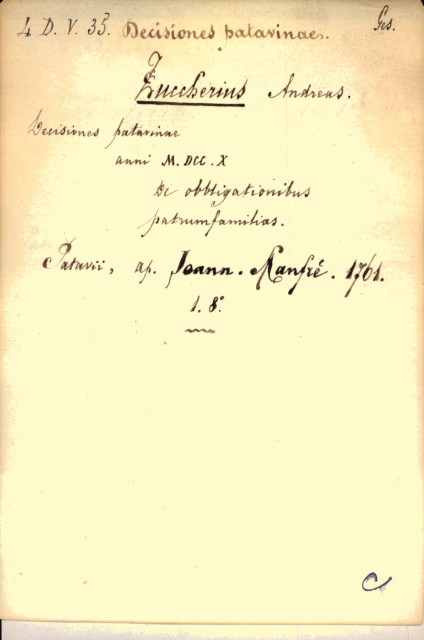 4. D. V. 35. Decisiones patavinae. Ges.
Zuccherius Andreas.
Decisiones patavinae
anni M. DCC. X
De obbligationibus
patrumfamilias.
Patavii, ap. Joann. Manfré. 1761.
1. 8°
C